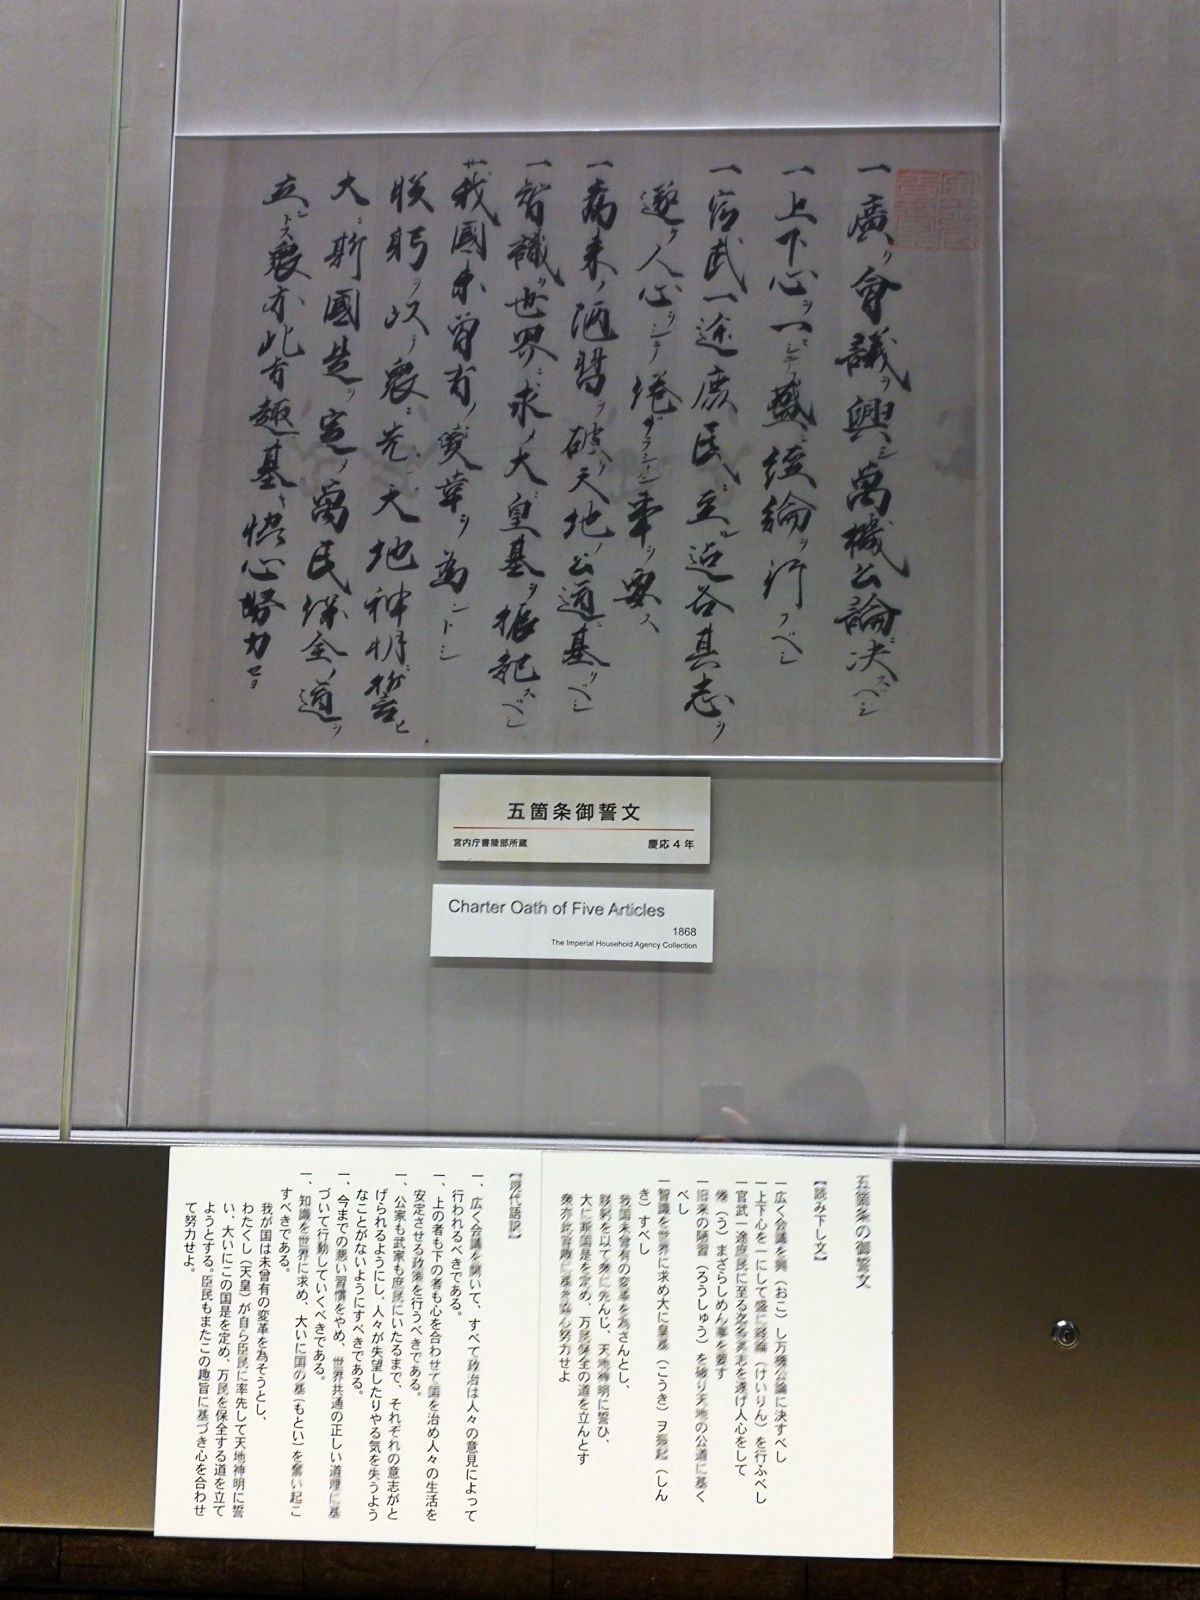 一廣ク會議ヲ興シ萬機公論ニ決スベシ
一上下心ヲ一ニシテ盛ニ經綸ヲ行フベシ
一官武一途庶民ニ至ル迄各其志ヲ
遂ケ人心ヲシテ倦マザラシメン事ヲ要ス
一舊来ノ陋習ヲ破リ天地ノ公道ニ基クベシ
一智識ヲ世界ニ求メ大ニ皇基ヲ振起スベシ
我國未曾有ノ變革ヲ為ントシ
朕躬ヲ以テ衆ニ先シ天地神明ニ誓ヒ
大ニ斯國是ヲ定メ萬民保全ノ道ヲ
立ントス衆亦此旨趣ニ基キ協心努力セヨ
五箇条御誓文
宮内庁書陵部所蔵 慶応4年
Charter Oath of Five Articles
1868
The Imperial Household Agency Collection
五箇条の御誓文
【読み下し文】
一広く会議を興(おこ)し万機公論に決すべし
一上下心を一にして盛に経綸(けいりん)を行ふべし
一官武一途庶民に至る迄各其志を遂げ人心をして
倦(う)まざらしめん事を要す
一旧来の陋習(ろうしゅう)を破り天地の公道に基く
べし
一智識を世界に求め大に皇基(こうき)ヲ振起(しん
き)すべし
我国未曾有の変革を為さんとし、
朕躬を以て衆に先んじ、天地神明に誓ひ、
大に斯国是を定め、万民保全の道を立んとす
衆亦此旨趣に基き協心努力せよ
【現代語訳】
一、広く会議を開いて、すべて政治は人々の意見によって
行われるべきである。
一、上の者も下の者も心を合わせて国を治め人々の生活を
安定させる政策を行うべきである。
一、公家も武家も庶民にいたるまで、それぞれの意志がと
げられるようにし、人々が失望したりやる気を失うよう
なことがないようにすべきである。
一、今までの悪い習慣をやめ、世界共通の正しい道理に基
づいて行動していくべきである。
一、知識を世界に求め、大いに国の基(もとい)を奮い起こ
すべきである。
我が国は未曾有の変革を為そうとし、
わたくし(天皇)が自ら臣民に率先して天地神明に誓
い、大いにこの国是を定め、万民を保全する道を立て
ようとする。臣民もまたこの趣旨に基づき心を合わせ
て努力せよ。